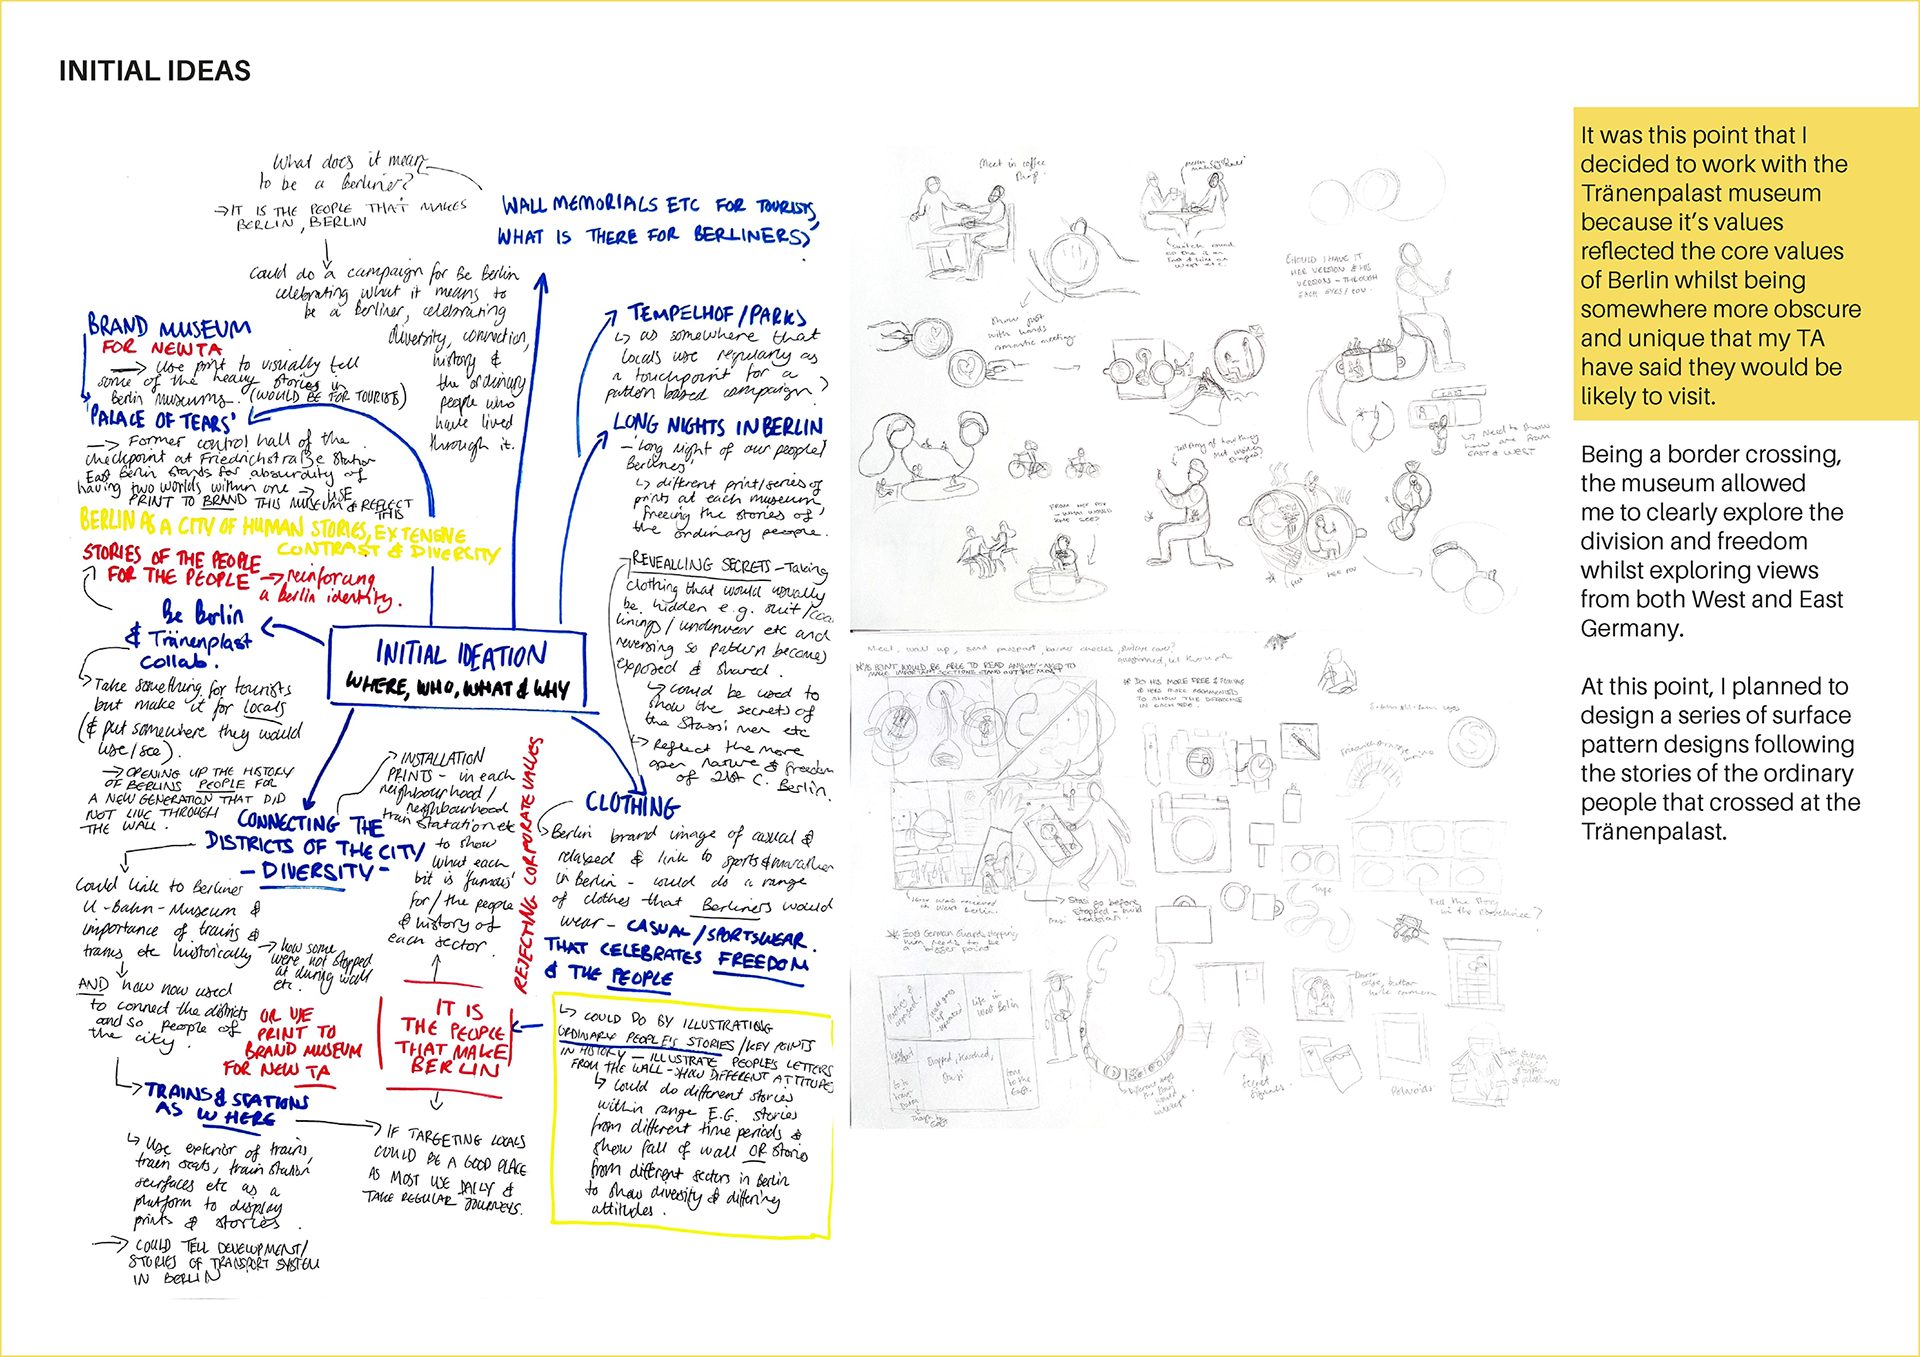 INITIAL IDEAS
What does it mean
to be a Berliner?
→ IT IS THE PEOPLE THAT MAKES
BERLIN, BERLIN
Could do a campaign for Be Berlin
celebrating what it means to
be a Berliner, celebrating
diversity, connection,
history &
the ordinary
people who
have lived
through it.
WALL MEMORIALS ETC FOR TOURISTS,
WHAT IS THERE FOR BERLINERS?
BRAND MUSEUM
FOR NEW TA
→ Use print to visually tell
some of the heavy stories in
Berlin museums. (WOULD BE FOR TOURISTS)
'PALACE OF TEARS'
→ Former control hall of the
checkpoint at Friedrichstraße Station
East Berlin stands for absurdity of
having two worlds within one → USE
PRINT TO BRAND THIS MUSEUM & REFLECT
THIS
BERLIN AS A CITY OF HUMAN STORIES, EXTENSIVE
CONTRAST & DIVERSITY
STORIES OF THE PEOPLE
FOR THE PEOPLE → reinforcing
a Berlin identity.
Be Berlin
& Tränenplast
collab.
Take something for tourists
but make it for locals
(& put somewhere they would
use/see).
→ OPENING UP THE HISTORY
OF BERLINS PEOPLE FOR
A NEW GENERATION THAT DID
NOT LIVE THROUGH
THE WALL.
TEMPELHOF/PARKS
↳ as somewhere that
locals use regularly as
a touchpoint for a
pattern based campaign?
LONG NIGHTS IN BERLIN
- 'Long night of our people/
Berlines'
↳ different print/series of
prints at each museum
'freeing the stories of'
the ordinary people.
REVEALLING SECRETS - Taking
clothing that would usually
be hidden e.g. suit/coat
linings/underwear etc and
reversing so pattern becomes
exposed & shared.
↳ could be used to
show the secrets of
the Stassi men etc
↳ Reflect the more
open nature & freedom
of 21st C. Berlin.
INITIAL IDEATION
WHERE, WHO, WHAT & WHY
→ INSTALLATION
PRINTS - in each
neighbourhood/
neighbourhood
train statation etc
to show
what each
bit is 'famous'
for/the people
& history of
each sector.
REJECTING CORPORATE VALUES
CONNECTING THE
DISTRICTS OF THE CITY
- DIVERSITY -
Could link to Berliner
U-Bahn-Museum &
importance of trains &
trams etc historically
→ how some
were not stopped
at during wall
etc.
AND how now used
to connect the districts
and so people of
the city.
OR USE
PRINT TO
BRAND MUSEUM
FOR NEW TA
TRAINS & STATIONS
AS WHERE
↳ Use exterior of trains,
train seats, train station
surfaces etc as a
platform to display
prints & stories.
→ COULD TELL DEVELOPMENT/
STORIES OF TRANSPORT SYSTEM
IN BERLIN
IT IS
THE PEOPLE
THAT MAKE
BERLIN
→ IF TARGETING LOCALS
COULD BE A GOOD PLACE
AS MOST USE DAILY &
TAKE REGULAR JOURNEYS.
CLOTHING
Berlin brand image of casual &
relaxed & link to sports & marathon
in Berlin - could do a range
of clothes that Berliners would
wear - CASUAL/SPORTSWEAR
THAT CELEBRATES FREEDOM
& THE PEOPLE
↳ COULD DO BY ILLUSTRATING
ORDINARY PEOPLE'S STORIES/KEY POINTS
IN HISTORY - ILLUSTRATE PEOPLE'S LETTERS
FROM THE WALL - SHOW DIFFERENT ATTITUDES
↳ could do different stories
within range E.G. stories
from different time periods &
show fall of wall OR stories
from different sectors in Berlin
to show diversity & differing
attitudes.
Meet in coffee
Shop.
Show just
with hands
romantic meeting
SHOULD I HAVE IT
HER VERSION & HIS
VERSIONS - THROUGH
EACH EYES/POV.
↳ Need to show
how are from
EAST & WEST
FROM HER POV
- WHAT WOULD
SHE SEE?
→ Stasi go before
stopped - build
tension.
* East German Guards stopping
him needs to be
a bigger point
Life in
West Berlin
Stopped, searched,
Stasi
Tape
Secret
Polaroids
It was this point that I
decided to work with the
Tränenpalast museum
because it's values
reflected the core values
of Berlin whilst being
somewhere more obscure
and unique that my TA
have said they would be
likely to visit.
Being a border crossing,
the museum allowed
me to clearly explore the
division and freedom
whilst exploring views
from both West and East
Germany.
At this point, I planned to
design a series of surface
pattern designs following
the stories of the ordinary
people that crossed at the
Tränenpalast.